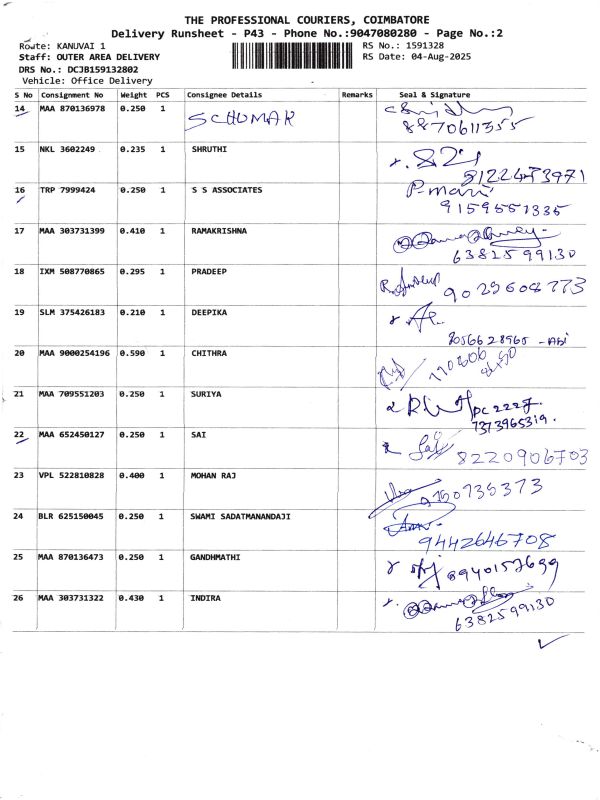 THE PROFESSIONAL COURIERS, COIMBATORE
Delivery Runsheet - P43 - Phone No.:9047080280 - Page No.:2
Route: KANUVAI 1 RS No.: 1591328
Staff: OUTER AREA DELIVERY RS Date: 04-Aug-2025
DRS No.: DCJB159132802
Vehicle: Office Delivery
S No Consignment No Weight PCS Consignee Details Remarks Seal & Signature
14 MAA 870136978 0.250 1 SCHUMAR
8870611355
15 NKL 3602249 0.235 1 SHRUTHI
8122453971
16 TRP 7999424 0.250 1 S S ASSOCIATES P-mani
9159551335
17 MAA 303731399 0.410 1 RAMAKRISHNA
6382599130
18 IXM 508770865 0.295 1 PRADEEP
9029608773
19 SLM 375426183 0.210 1 DEEPIKA
8056628965 - Abi
20 MAA 9000254196 0.590 1 CHITHRA
21 MAA 709551203 0.250 1 SURIYA PC 2227
7373965319.
22 MAA 652450127 0.250 1 SAI Sai
8220906703
23 VPL 522810828 0.400 1 MOHAN RAJ
9750735373
24 BLR 625150045 0.250 1 SWAMI SADATMANANDAJI
9442646708
25 MAA 870136473 0.250 1 GANDHMATHI
8940157699
26 MAA 303731322 0.430 1 INDIRA
6382599130